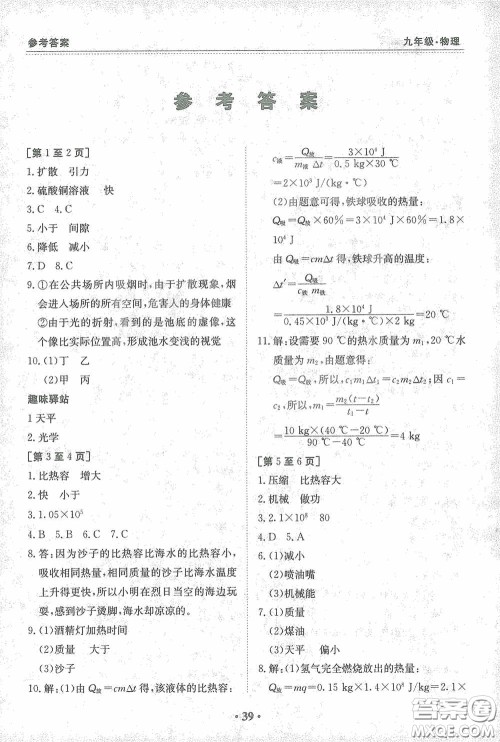 参考答案
九年级·物理
参考答案
[第1至2页]
1.扩散 引力
2.硫酸铜溶液 快
3.C 4.C
5.小于 间隙
6.降低 减小
7.D 8.C
9.①在公共场所内吸烟时,由于扩散现象,烟
会进入场所的所有空间,危害人的身体健康
②由于光的折射,看到的是池底的虚像,这
个像比实际位置高,形成池水变浅的视觉
10.(1)丁 乙
(2)甲 丙
趣味驿站
1 天平
2.光学
[第3至4页]
1.比热容 增大
2.快 小于
3.1.05×10⁵
4.B 5.B 6.C 7.C
8.答:因为沙子的比热容比海水的比热容小,
吸收相同的热量,相同质量的沙子比海水温度
上升得更快,所以小明在烈日当空的海边玩
耍,感到沙子烫脚,海水却凉凉的。
9.(1)酒精灯加热时间
(2)质量 大于
(3)沙子
10.解:(1)由 Q放=cmΔt得,该液体的比热容:
c液=Q放/(m液 Δt)=3×10⁴ J/(0.5 kg×30 ℃)
=2×10³ J/(kg·℃)
(2)由题意可得,铁球吸收的热量:
Q吸=Q放×60%=3×10⁴ J×60%=1.8×
10⁴ J
由 Q吸=cmΔt得,铁球升高的温度:
Δt′=Q吸/(c铁 m铁)
=1.8×10⁴ J/(0.45×10³ J/(kg·℃)×2 kg)=20 ℃
11.解:设需要 90 ℃的热水质量为 m₁,20 ℃水
的质量为 m₂,由题意得:
Q吸=Q放,所以,c₁m₁Δt₁=c₂m₂Δt₂,因为
c₁=c₂,所以,m₁=m₂(t-t₂)/(t₁-t)
=10 kg×(40 ℃-20 ℃)/(90 ℃-40 ℃)=4 kg
[第5至6页]
1.压缩 比热容大
2.机械 做功
3.2.1×10⁸ 80
4.D 5.A
6.(1)减小
(2)喷油嘴
(3)机械能
7.(1)质量
(2)煤油
(3)天平 偏小
8.解:(1)氢气完全燃烧放出的热量:
Q放=mq=0.15 kg×1.4×10⁸ J/kg=2.1×
·39·
答案圈
MXQE.COM